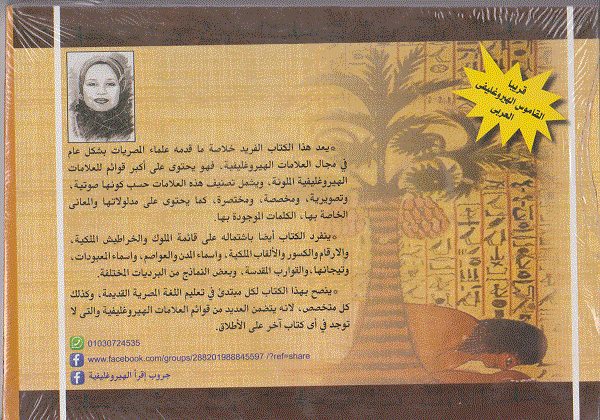 قريبا
القاموس الهيروغليفى
العربى
*يعد هذا الكتاب الفريد خلاصة ما قدمه علماء المصريات بشكل عام
فى مجال العلامات الهيروغليفية، فهو يحتوى على أكبر قوائم للعلامات
الهيروغليفية الملونة، ويشمل تصنيف هذه العلامات حسب كونها صوتية،
وتصويرية، ومخصصة، ومختصرة، كما يحتوى على مدلولاتها والمعانى
الخاصة بها، الكلمات الموجودة بها.
*ينفرد الكتاب أيضا باشتماله على قائمة الملوك والخراطيش الملكية،
والارقام والكسور والألقاب الملكية، واسماء المدن والعواصم، واسماء المعبودات،
وتيجانها، والقوارب المقدسة، وبعض النماذج من البرديات المختلفة.
*ينصح بهذا الكتاب لكل مبتدئ فى تعليم اللغة المصرية القديمة، وكذلك
كل متخصص، لانه يتضمن العديد من قوائم العلامات الهيروغليفية والتى لا
توجد فى أى كتاب آخر على الأطلاق.
01030724535
www.facebook.com/groups/288201988845597 /?ref=share
جروب إقرأ الهيروغليفية